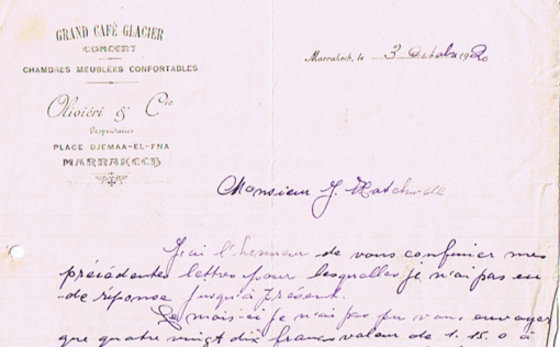 GRAND CAFÉ GLACIER
CONCERT
CHAMBRES MEUBLÉES CONFORTABLES
Oliviéri & Cie
Propriétaires
PLACE DJEMAA-EL-FNA
MARRAKECH
Marrakech, le 3 Octobre 1920
Monsieur J.
J'ai l'honneur de vous confirmer mes
précédentes lettres pour lesquelles je n'ai pas eu
de réponse jusqu'à présent.
Ce mois-ci je n'ai pas pu vous envoyer
que quatre vingt dix francs valeur de 1.15.0 à